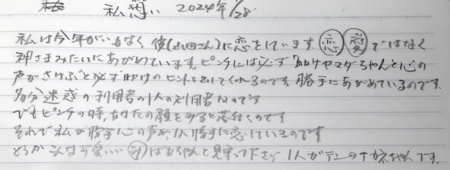 私想い 2024年1/28
私は今年がいもなく 彼(山田さん)に恋をしています 恋 愛 ではなく
神さまみたいにあがめています。ピンチには必ず 助けヤマダちゃんと心の
声がさけぶと必ず助けのヒントを出してくれるのです 勝手にあがめているのです。
多分迷惑の利用者の1人の利用者なのです
でもピンチの時、あなたの顔をみると落付くのです
それで私が勝手にこの声が人り勝手に恋しているのです
どうか こんな可愛い ばあちゃんと見守って下さい 1人が